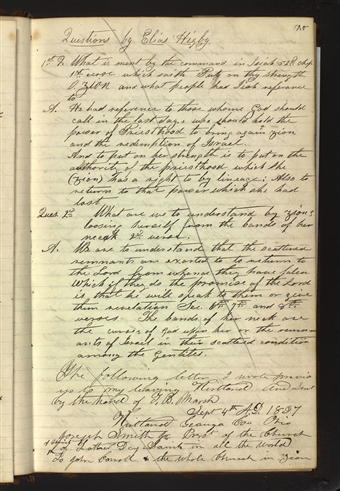 Questions by Elias Higby
1st Q. What is ment by the command in Isaiah 52d chap
1st verse which saith Put on thy strength
O ZION and what people had Isaiah referance
to
A. He had referance to those whome God should
call in the last days who should hold the
power of Priesthood to bring again zion
and the redemption of Israel.
And to put on her strength is to put on the
authority of the priesthood which she
(zion) has a right to by lineage: Also to
return to that power which she had
lost
Ques. 2d What are we to understand by zions
loosing herself from the bands of her
neck 2d verse.
A. We are to understand that the scattered
remnants are exorted to to return to
the Lord from whence they have falen
which if they do the promise of the Lord
is that he will speak to them or give
them revelation See 6th 7th and 8th
verses The bands of her neck are
the curses of God upon her or the remn-
ants of Israel in their scattered condition
among the Gentiles.
The following letter I wrote previo
us to my leaving Kirtland and sent
by the hand of T. B. Marsh
Sept 4th A.D. 1837
Kirtland Geauga Co. Ohio
Joseph Smith Jr Prest of the Church
of Christ of Latter Day Saints in all the world
To John Corrill & the whole Church in Zion